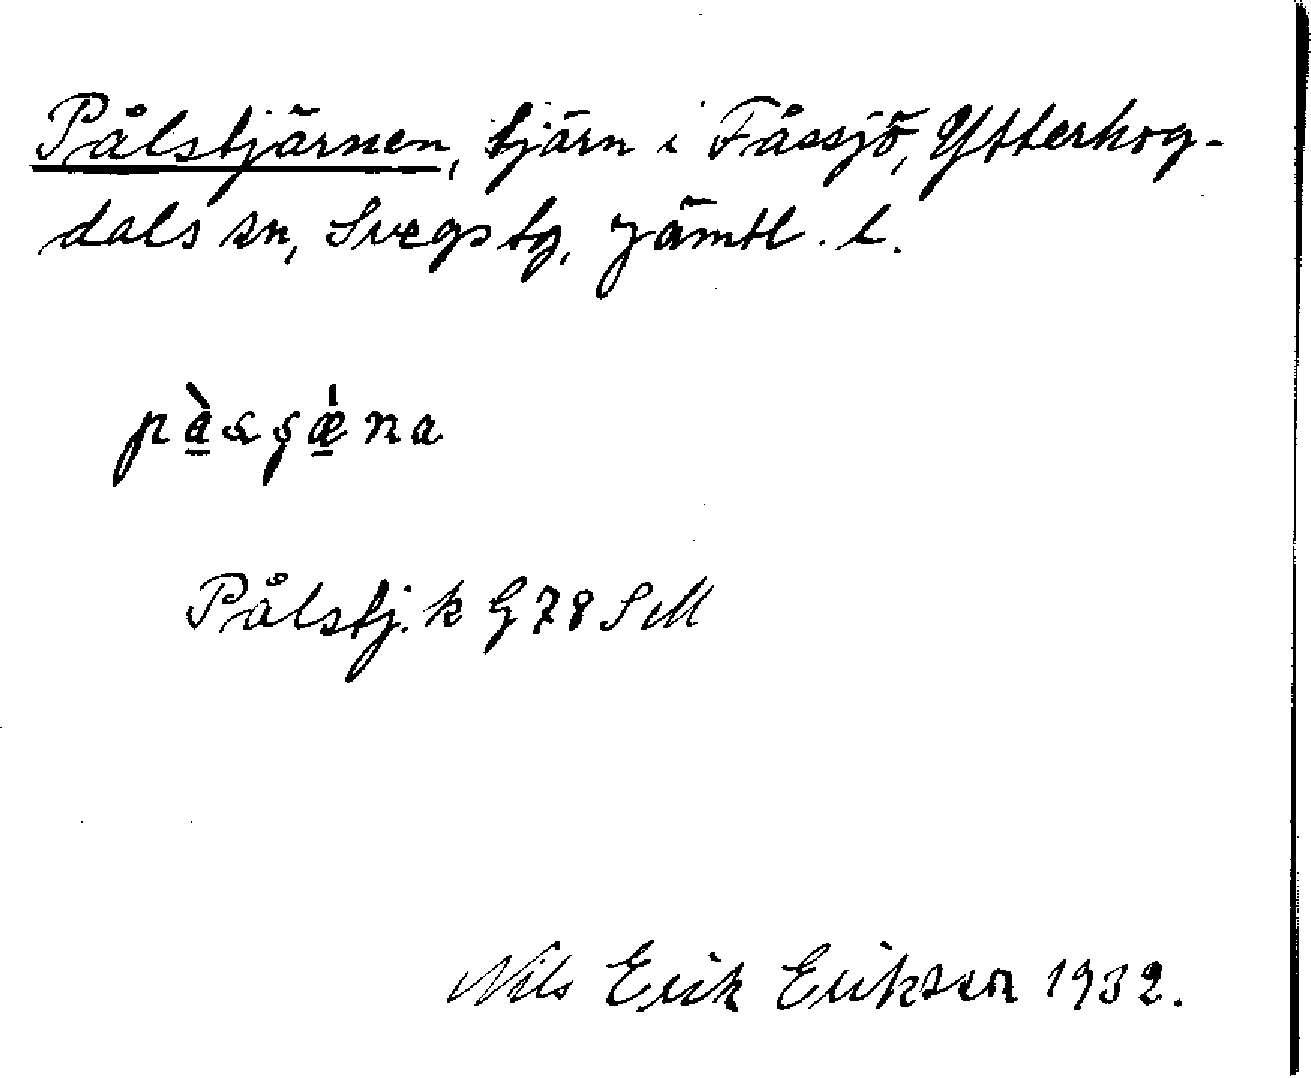 Pålstjärnen, tjärn i Fåssjö, Ytterhog-
dals sn, Svegs tg, Jämtl. l.
Pålstj. k G78SM
Nils Erik Erikson 1932.